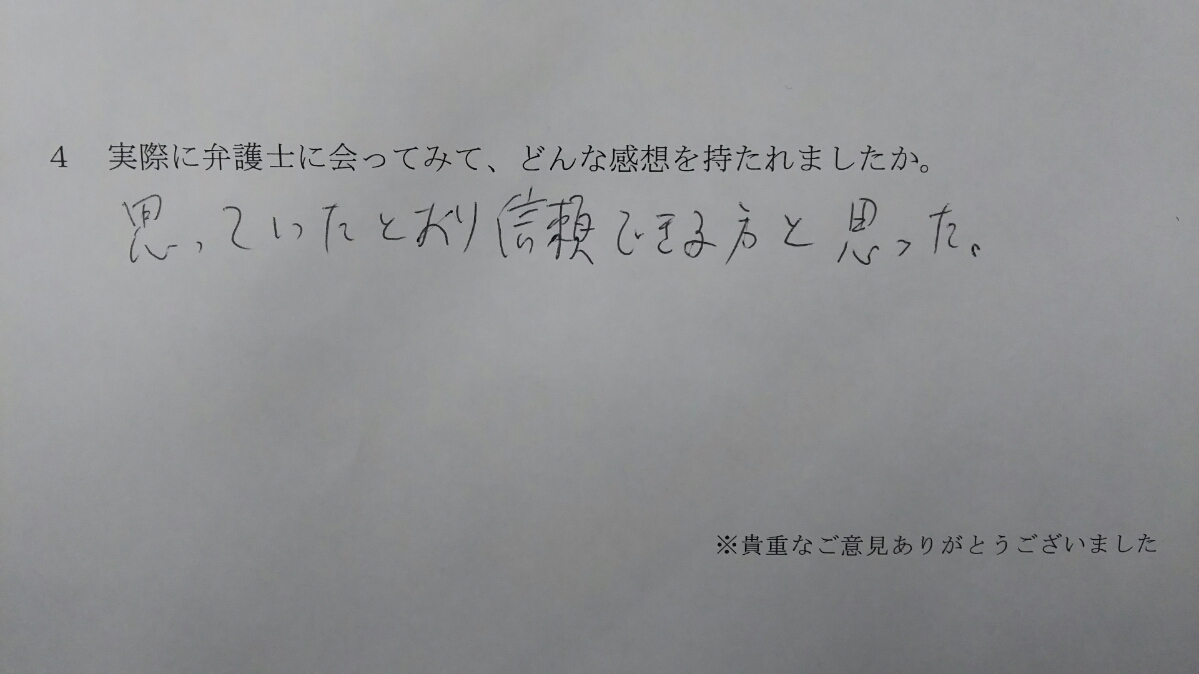 4 実際に弁護士に会ってみて、どんな感想を持たれましたか。
思っていたとおり信頼できる方と思った。
※貴重なご意見ありがとうございました